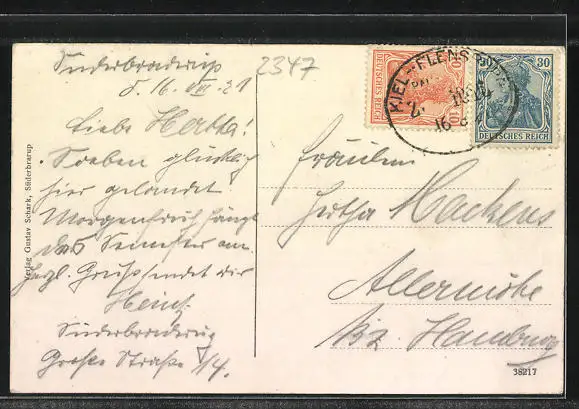 Süderbrarup
d. 16. VIII. 21
2347
Liebe Hertha!
Soeben glücklich
hier gelandet
Morgenfrüh fängt
das Semester an.
Herzl. Gruß sendet dir
Heinz
Süderbrarup
Große Straße 14.
Verlag Gustav Schark, Süderbrarup
10
DEUTSCHES REICH
10
30
30
DEUTSCHES REICH
KIEL-FLENSBURG
16
Fräulein
Hertha Mackens
Allermöhe
bz. Hamburg
38217